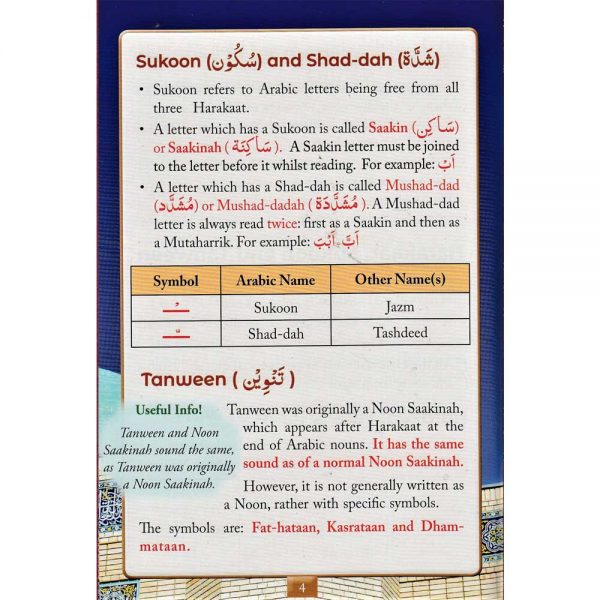 Sukoon (سُكُوْن) and Shad-dah (شَدَّة)
• Sukoon refers to Arabic letters being free from all
three Harakaat.
• A letter which has a Sukoon is called Saakin (سَاكِن)
or Saakinah (سَاكِنَة). A Saakin letter must be joined
to the letter before it whilst reading. For example: اَبْ
• A letter which has a Shad-dah is called Mushad-dad
(مُشَدَّد) or Mushad-dadah (مُشَدَّدَة). A Mushad-dad
letter is always read twice: first as a Saakin and then as
a Mutaharrik. For example:
Symbol Arabic Name Other Name(s)
Sukoon Jazm
Shad-dah Tashdeed
Tanween (تَنْوِيْن)
Useful Info!
Tanween and Noon
Saakinah sound the same,
as Tanween was originally
a Noon Saakinah.
Tanween was originally a Noon Saakinah,
which appears after Harakaat at the
end of Arabic nouns. It has the same
sound as of a normal Noon Saakinah.
However, it is not generally written as
a Noon, rather with specific symbols.
The symbols are: Fat-hataan, Kasrataan and Dham-
mataan.
4